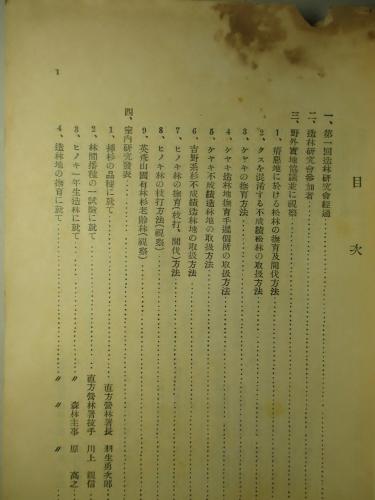 目次
一、第一回造林研究會經過
二、造林研究會參加者
三、野外實地協議並に視察
1、瘠惡地に於ける松林の撫育及間伐方法
2、クスを混淆する不成績松林の取扱方法
3、ケヤキの撫育方法
4、ケヤキ造林地撫育手遲個所の取扱方法
5、ケヤキ不成績造林地の取扱方法
6、吉野系杉不成績造林地の取扱方法
7、ヒノキ林の撫育(枝打、間伐)方法
8、ヒノキ林の枝打方法(視察)
9、英彦山國有林杉老齡林(視察)
四、室内研究發表
1、挿杉の品種に就て 直方營林署長 羽生勇次郎
2、林間播種の一試驗に就て 直方營林署技手 川上 親信
3、ヒノキ一年生造林に就て 〃 森林主事 原 高之
4、造林地の撫育に就て 〃 〃
1